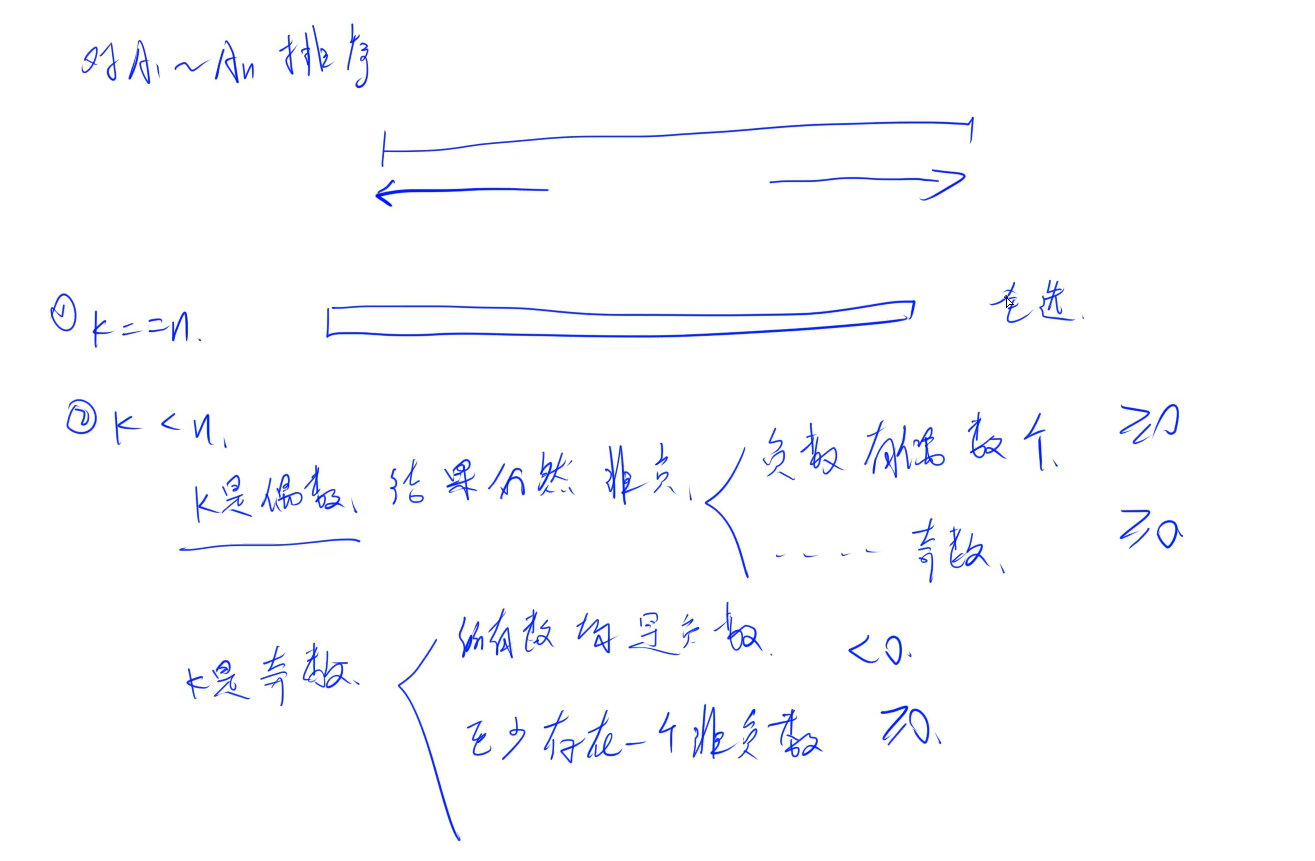 对A₁~Aₙ 排序
① k==n. 全选.
② k<n.
k是偶数、结果仍然非负、 负数有偶数个、 ≥0
---- 奇数、 ≥0
k是奇数、 所有数均是负数. <0.
至少存在一个非负数 ≥0、